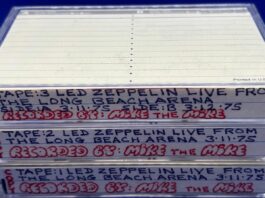 Printed in U.S
TAPE:3 LED ZEPPELIN LIVE FROM
THE LONG BEACH ARENA
SIDE:A 3:11:75 SIDE:B 3:12:75
RECORDED BY: MIKE THE MIKE
TAPE:2 LED ZEPPELIN LIVE FROM
THE LONG BEACH ARENA 3:12:75
RECORDED BY: MIKE THE MIKE
TAPE:1 LED ZEPPELIN LIVE FROM
THE LONG BEACH ARENA 3:11:75
RECORDED BY: MIKE THE MIKE